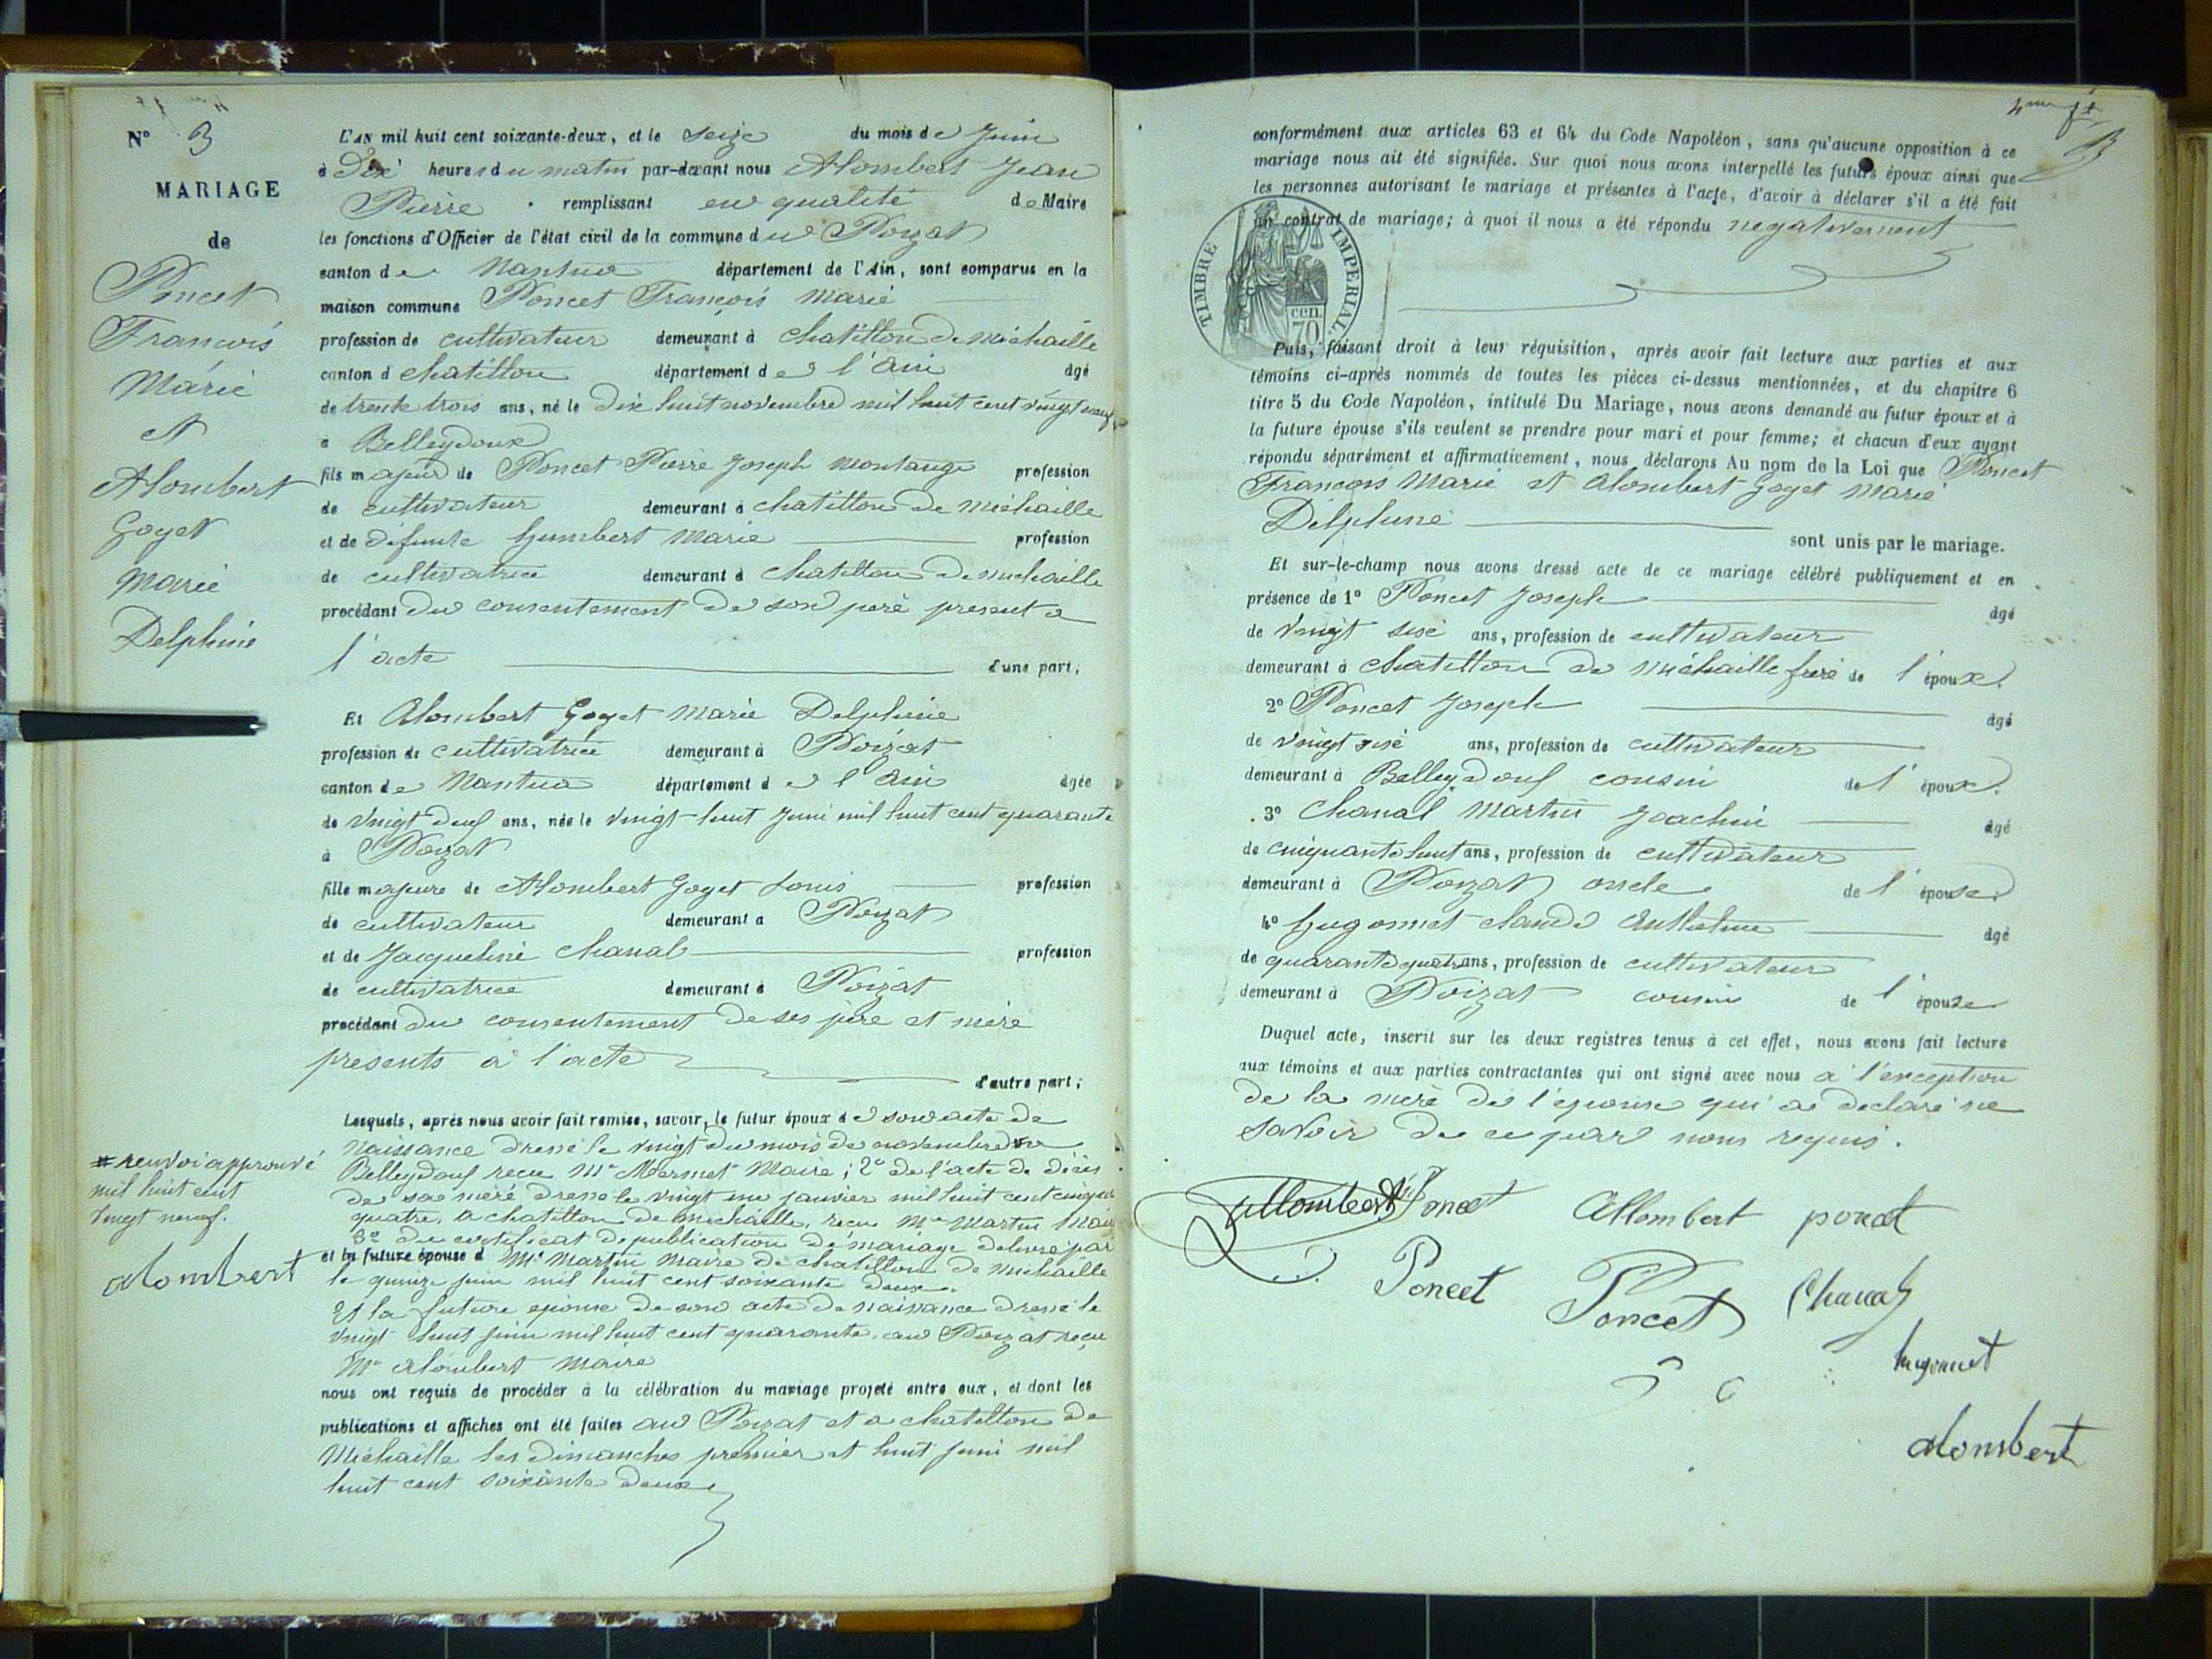 N° 3
MARIAGE
de
Poncet
François
Marie
et
Alombert
Goyet
Marie
Delphine
L'AN mil huit cent soixante-deux, et le Seize du mois de Juin
à Dix heures du matin par-devant nous Alombert Jean
Pierre remplissant en qualité de Maire
les fonctions d'Officier de l'état civil de la commune du Poizat
canton de Nantua département de l'Ain, sont comparus en la
maison commune Poncet François Marie
profession de cultivateur demeurant à Chatillon de Michaille
canton d chatillon département de l'Ain âgé
de trente trois ans, né le Dix huit novembre mil huit cent vingt neuf
à Belleydoux
fils majeur de Poncet Pierre Joseph Montange profession
de cultivateur demeurant à chatillon de Michaille
et de défunte humbert Marie profession
de cultivatrice demeurant à Chatillon de michaille
procédant du consentement de son père présent a
l'acte d'une part;
Et Alombert Goyet Marie Delphine
profession de cultivatrice demeurant à Poizat
canton de Nantua département de l'Ain âgée
de Vingt deux ans, née le Vingt-huit Juin mil huit cent quarante
à Poizat
fille majeure de Alombert Goyet Louis profession
de cultivateur demeurant à Poizat
et de Jacqueline Chanal profession
de cultivatrice demeurant à Poizat
procédant du consentement de ses père et mère
présents à l'acte d'autre part;
Lesquels, après nous avoir fait remise, savoir, le futur époux de son acte de
naissance dressé le vingt du mois de novembre #
Belleydoux recu Mr Mermet Maire; 2° de l'acte de décès
de sa mère dressé le vingt un janvier mil huit cent cinquante
quatre, à chatillon de michaille, recu Mr Martin Maire
3° du certificat de publication de mariage délivré par
et la future épouse d Mr Martin Maire de chatillon de Michaille
le quinze juin mil huit cent soixante deux.
Et la future épouse de son acte de naissance dressé le
vingt huit juin mil huit cent quarante, au Poizat reçu
Mr alombert Maire
nous ont requis de procéder à la célébration du mariage projeté entre eux, et dont les
publications et affiches ont été faites au Poizat et a chatillon de
Michaille les dimanches premier et huit juin mil
huit cent soixante deux
# renvoi approuvé
mil huit cent
vingt neuf.
alombert
4me ft
conformément aux articles 63 et 64 du Code Napoléon, sans qu'aucune opposition à ce
mariage nous ait été signifiée. Sur quoi nous avons interpellé les futurs époux ainsi que
les personnes autorisant le mariage et présentes à l'acte, d'avoir à déclarer s'il a été fait
un contrat de mariage; à quoi il nous a été répondu négativement
TIMBRE IMPÉRIAL.
70 cen.
Puis, faisant droit à leur réquisition, après avoir fait lecture aux parties et aux
témoins ci-après nommés de toutes les pièces ci-dessus mentionnées, et du chapitre 6
titre 5 du Code Napoléon, intitulé Du Mariage, nous avons demandé au futur époux et à
la future épouse s'ils veulent se prendre pour mari et pour femme; et chacun d'eux ayant
répondu séparément et affirmativement, nous déclarons Au nom de la Loi que Poncet
François Marie et Alombert Goyet Marie
Delphine
sont unis par le mariage.
Et sur-le-champ nous avons dressé acte de ce mariage célébré publiquement et en
présence de 1° Poncet Joseph âgé
de Vingt six ans, profession de cultivateur
demeurant à chatillon de Michaille frère de l'époux.
2° Poncet Joseph âgé
de Vingt six ans, profession de cultivateur
demeurant à Belleydoux cousin de l'époux.
3° Chanal Martin Joachim âgé
de cinquante huit ans, profession de cultivateur
demeurant à Poizat oncle de l'épouse.
4° hugonnet claude Anthelme âgé
de quarante quatre ans, profession de cultivateur
demeurant à Poizat cousin de l'épouse
Duquel acte, inscrit sur les deux registres tenus à cet effet, nous avons fait lecture
aux témoins et aux parties contractantes qui ont signé avec nous à l'exception
de la mère de l'épouse qui a déclaré ne
savoir de ce par nous requis.
Allombert Poncet Allombert poncet
Poncet Poncet Chanal
hugonnet
alombert